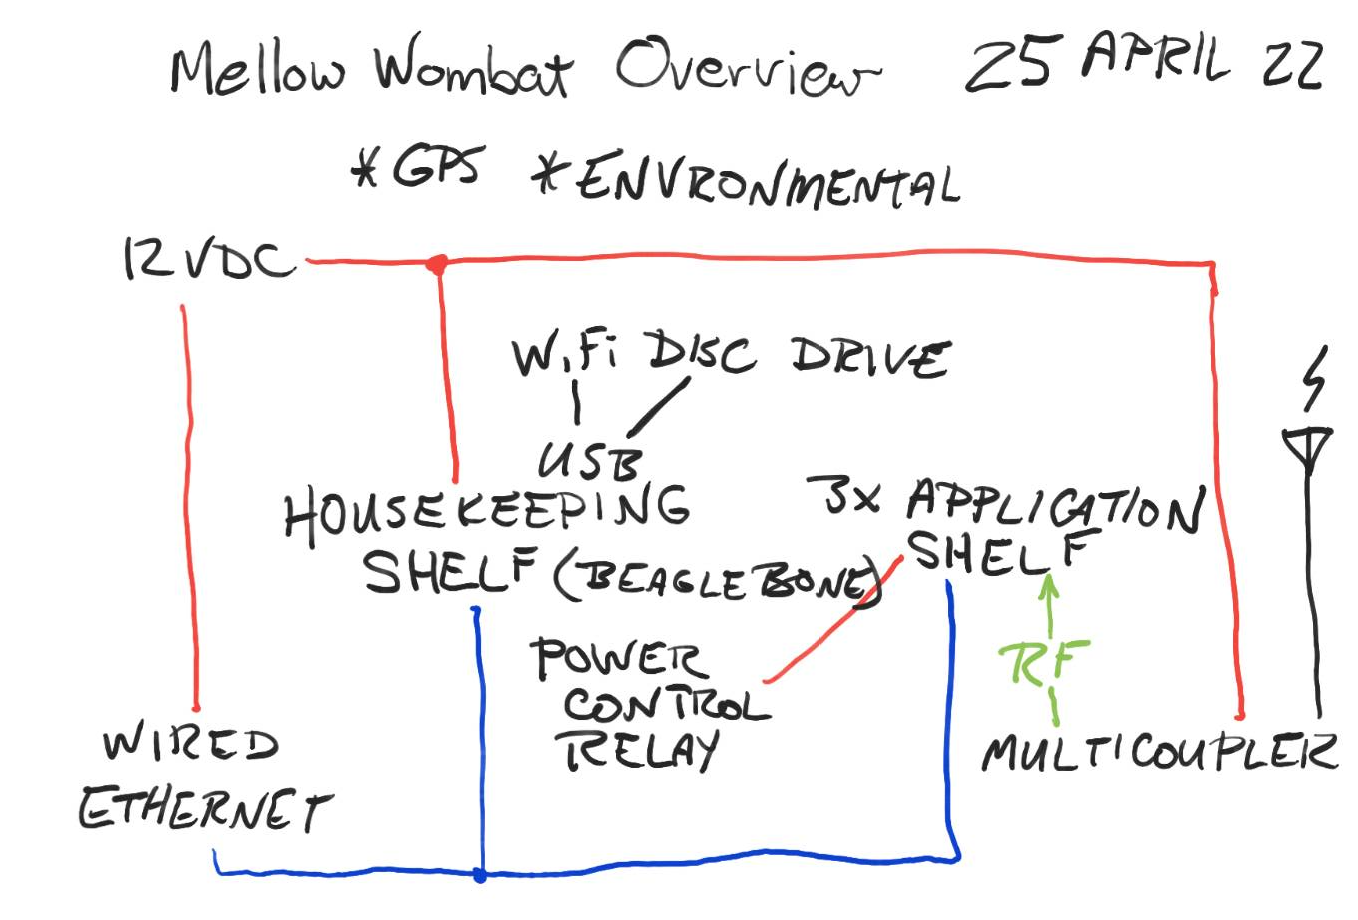 Mellow Wombat Overview 25 APRIL 22
* GPS * ENVRONMENTAL
12 VDC
WiFi DISC DRIVE
USB
HOUSEKEEPING
SHELF (BEAGLEBONE)
3x APPLICATION
SHELF
POWER
CONTROL
RELAY
RF
WIRED
ETHERNET
MULTICOUPLER